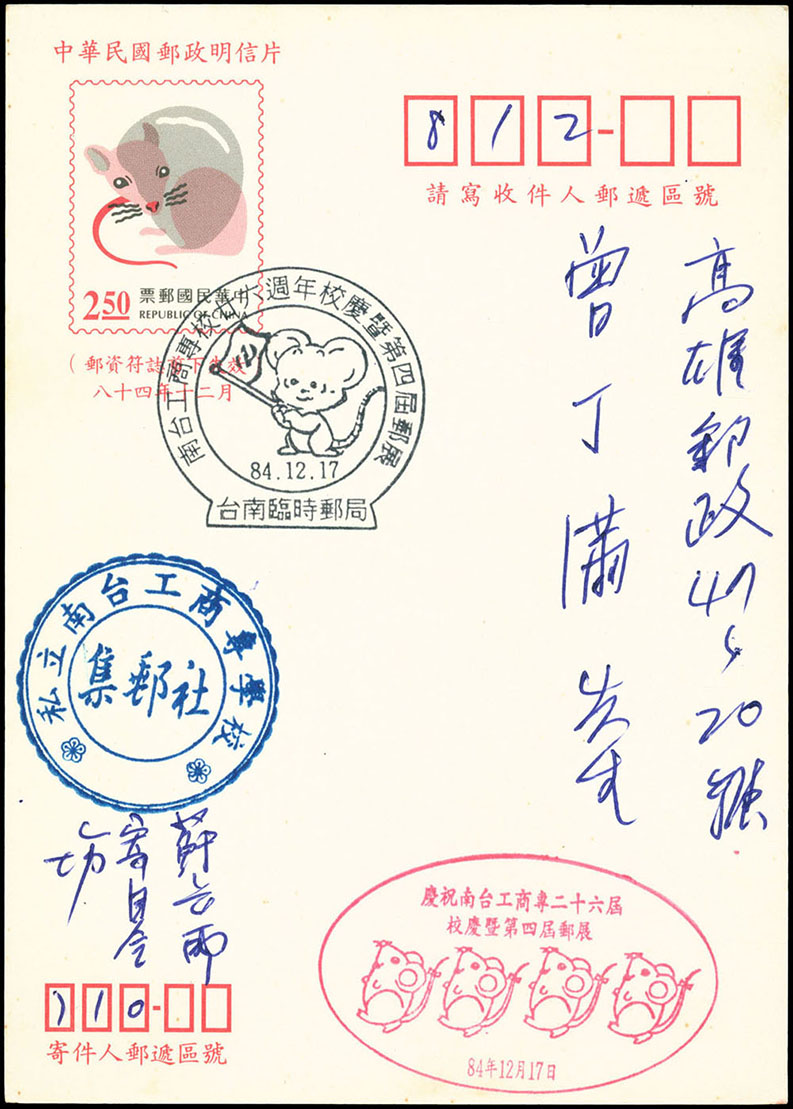 中華民國郵政明信片
812-
請寫收件人郵遞區號
2.50
票郵國民華中
REPUBLIC OF CHINA
(郵資符誌剪下失效
八十四年十二月
南台工商專校廿六週年校慶暨第四屆郵展
84.12.17
台南臨時郵局
高雄郵政47
20號
曾丁滿先生
私立南台工商專學校
集郵社
慶祝南台工商專二十六屆
校慶暨第四屆郵展
84年12月17日
710-
寄件人郵遞區號